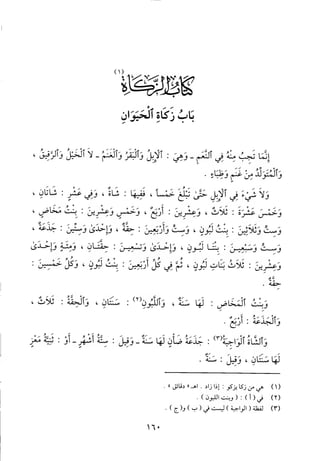 كتاب الزكاة (١)
باب زكاة الحيوان
إنما تجب منه في النعم - وهي : الإبل والبقر والغنم - لا الخيل والرقيق ،
والمتولد من غنم وظباء .
ولا شيء في الإبل حتى تبلغ خمسا ، ففيها : شاة ، وفي عشر : شاتان ،
وخمس عشرة : ثلاث ، وعشرين : أربع ، وخمس وعشرين : بنت مخاض ،
وست وثلاثين : بنت لبون ، وست وأربعين : حقة ، وإحدى وستين : جذعة ،
وست وسبعين : بنتا لبون ، وإحدى وتسعين : حقتان ، ومئة وإحدى
وعشرين : ثلاث بنات لبون ، ثم في كل أربعين : بنت لبون ، وكل خمسين :
حقة .
وبنت المخاض : لها سنة ، واللبون(٢) : سنتان ، والحقة : ثلاث ،
والجذعة : أربع .
والشاة الواجبة(٣) : جذعة ضأن لها سنة - وقيل : ستة أشهر - أو : ثنية معز
لها سنتان ، وقيل : سنة .
(١) هي من زكا يزكو : إذا زاد . اهـ « دقائق » .
(٢) في ( أ ) : ( وبنت اللبون ) .
(٣) لفظة ( الواجبة ) ليست في ( ب ) و( ج ) .
١٦٠